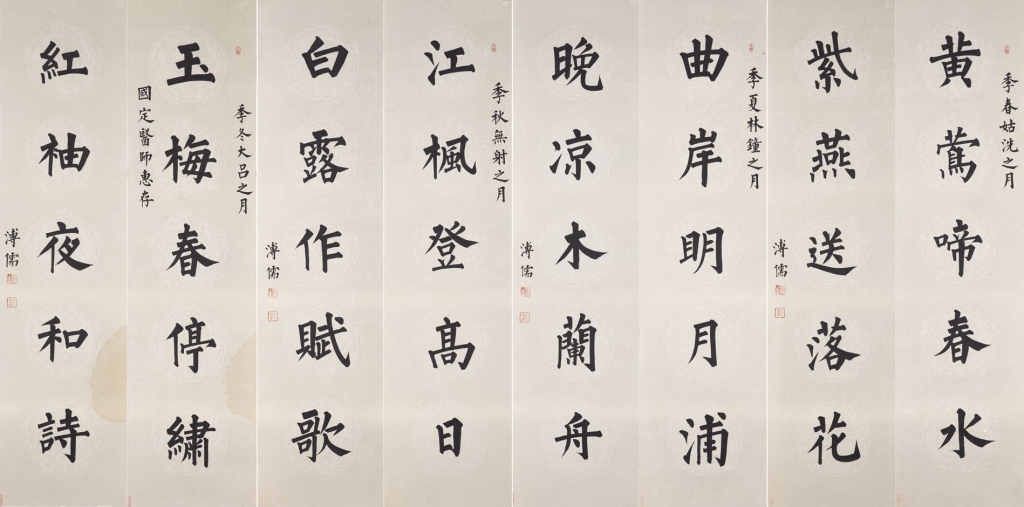 季春姑洗之月
黃鶯啼春水
紫燕送落花
溥儒
季夏林鐘之月
曲岸明月浦
晚凉木蘭舟
溥儒
季秋無射之月
江楓登高日
白露作賦歌
溥儒
季冬大呂之月
玉梅春停繡
國定醫師惠存
紅袖夜和詩
溥儒